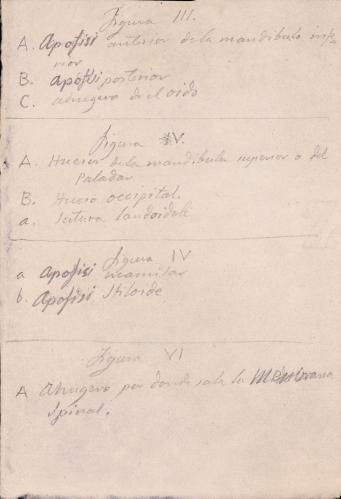 Figura III.
A. Apofisi anterior de la mandibula infe-
rior
B. Apofisi posterior
C. ahugero del oido
Figura V.
A. Huesos de la mandibula superior o del
Paladar.
B. Hueso occipital.
a. Sutura landoidele
Figura IV
a Apofisi mamilar
b. Apofisi Stiloide
Figura VI
A Ahugero por donde sale la Membrana
Spinal.